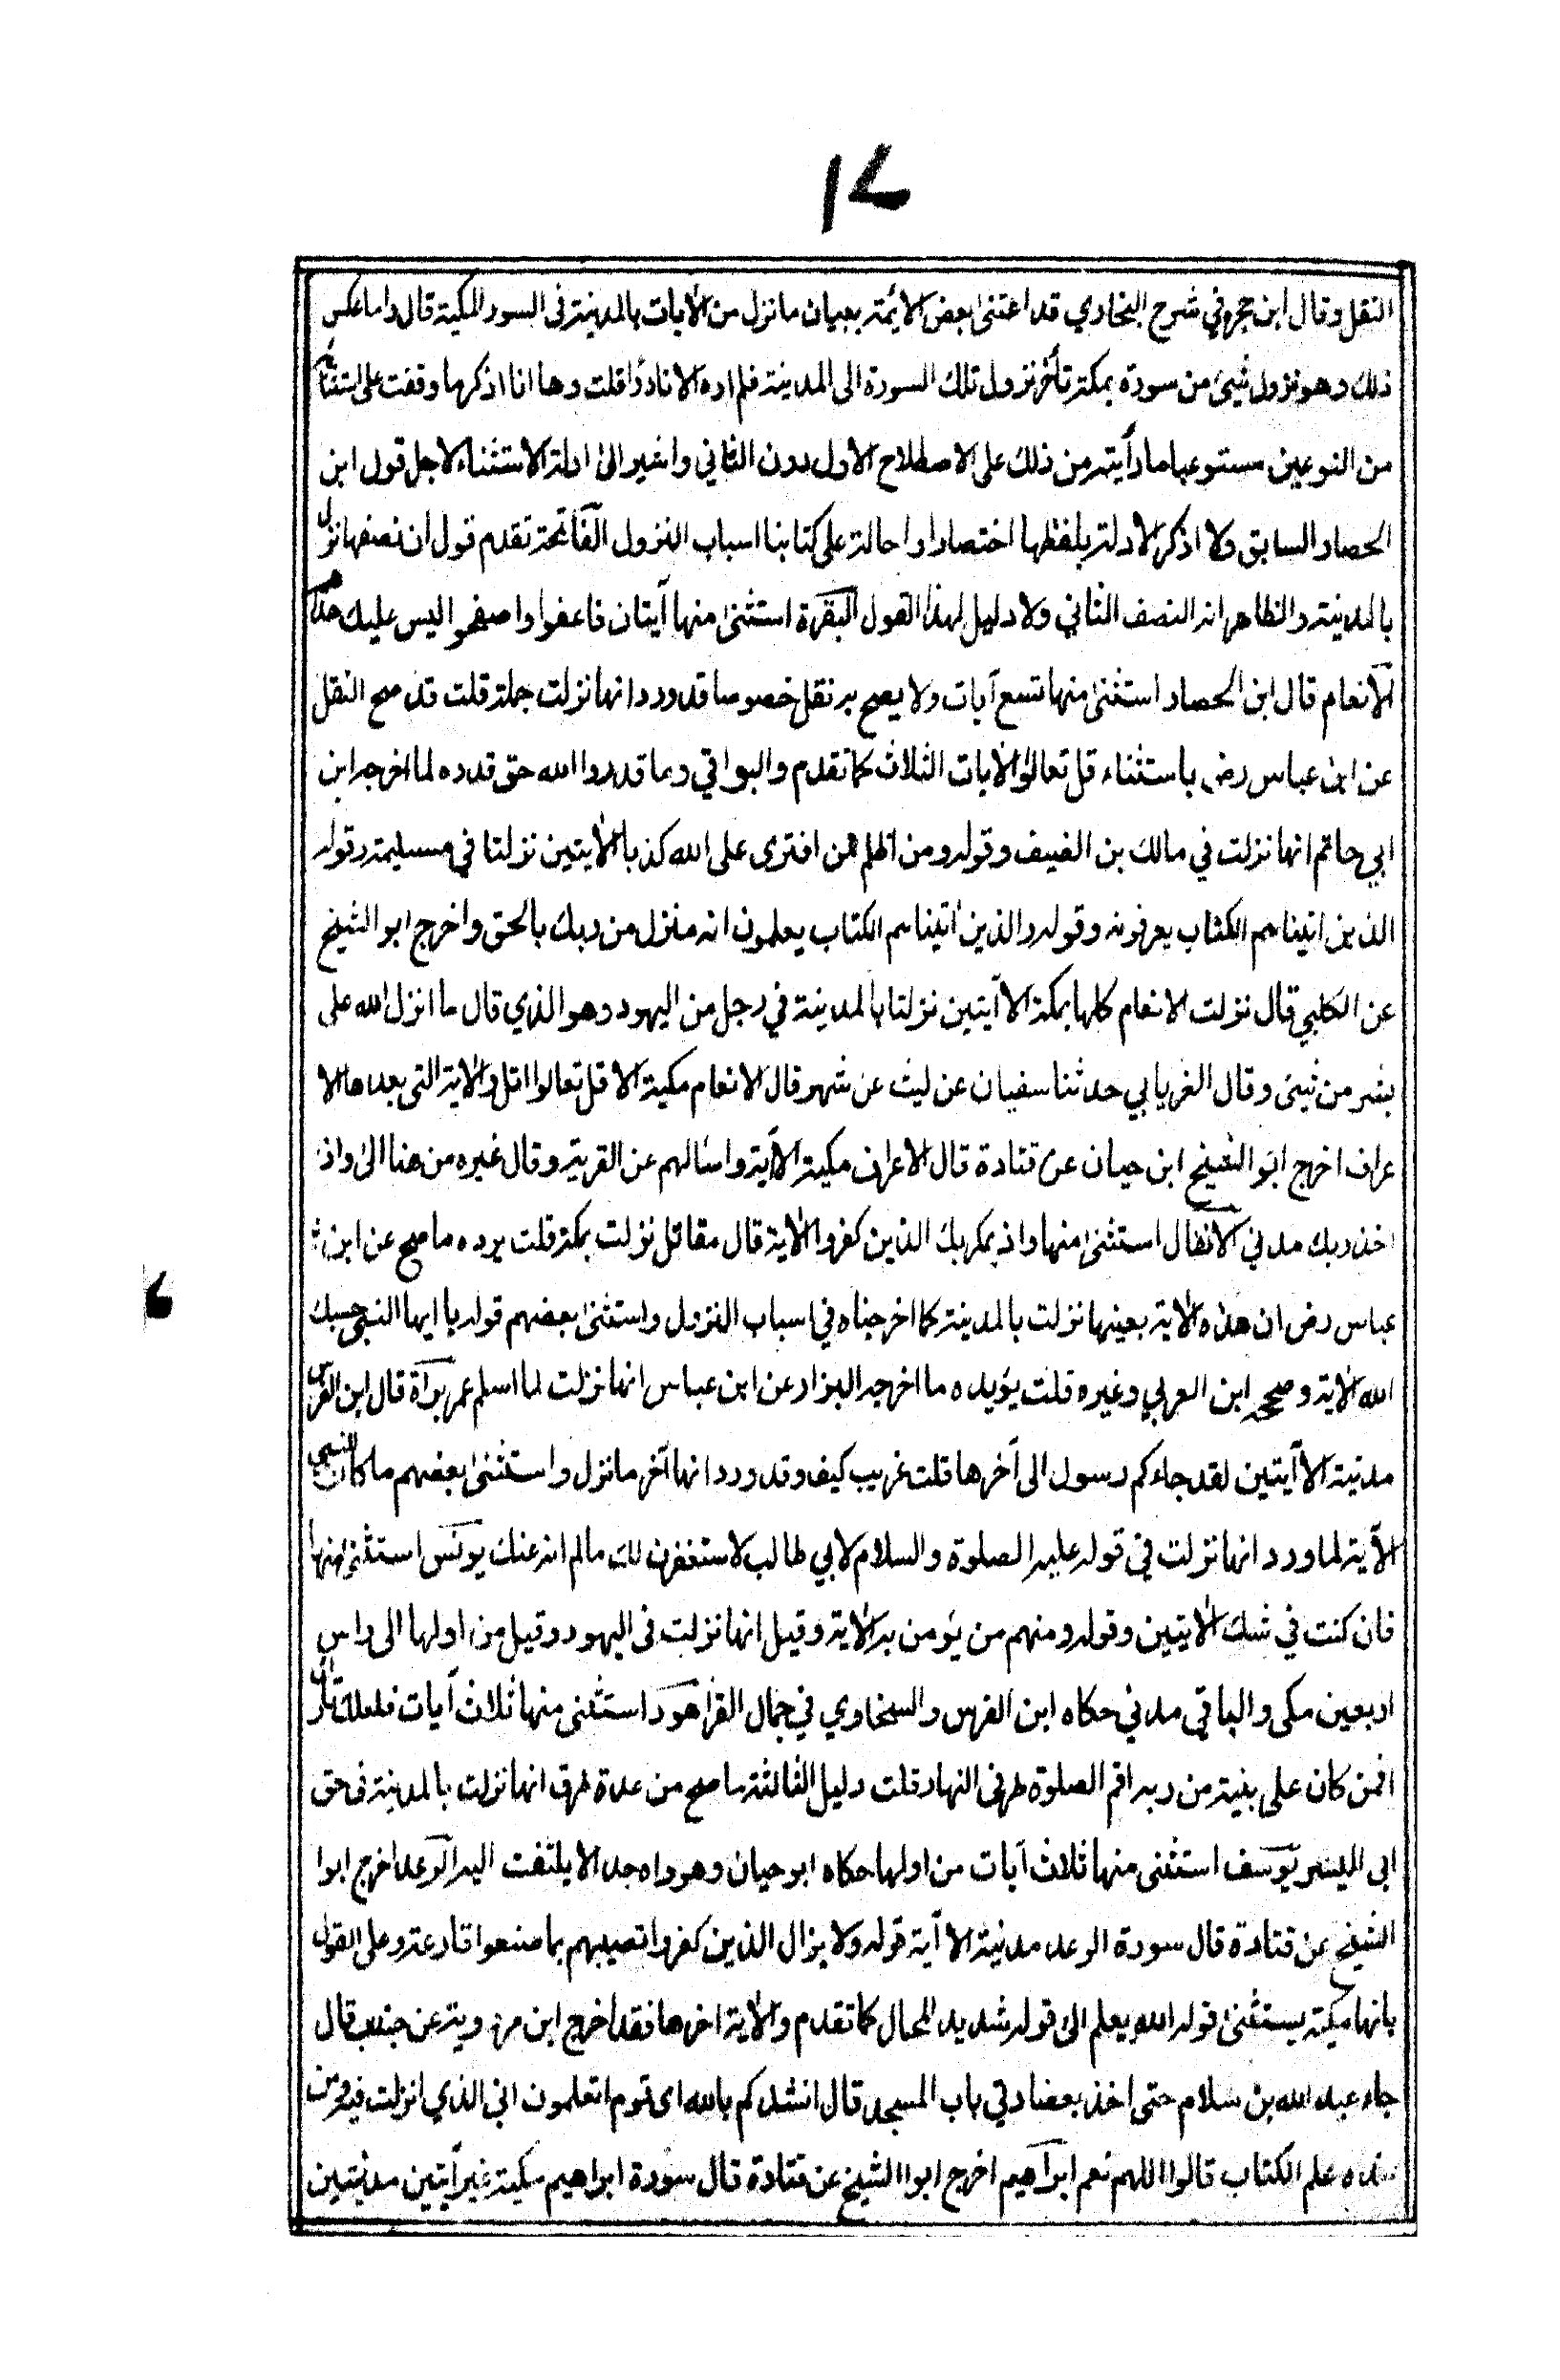 ۱۷
النقل وقال ابن حجر في شرح البخاري قد اعتنى بعض الايمة ببيان ما نزل من الآيات بالمدينة في السور المكية قال واما عكس
ذلك وهو نزول شيئ من سورة بمكة تأخر نزول تلك السورة الى المدينة فلم اره الا نادرًا قلت وها انا اذكر ما وقفت على استثنائه
من النوعين مستوعبا ما رأيته من ذلك على الاصطلاح الاول دون الثاني واشير الى ادلة الاستثناء لاجل قول ابن
الحصار السابق ولا اذكر الادلة بلفظها اختصارا واحالة على كتابنا اسباب النزول الفاتحة تقدم قول ان نصفها نزل
بالمدينة والظاهر انه النصف الثاني ولا دليل لهذا القول البقرة استثنى منها آيتان فاعفوا واصفحوا ليس عليك هداهم
الانعام قال ابن الحصار استثنى منها تسع آيات ولا يصح به نقل خصوصا قد ورد انها نزلت جملة قلت قد صح النقل
عن ابن عباس رض باستثناء قل تعالوا الآيات الثلاث كما تقدم والبواقي وما قدروا الله حق قدره لما اخرجه ابن
ابي حاتم انها نزلت في مالك بن الضيف وقوله ومن اظلم ممن افترى على الله كذبا الآيتين نزلتا في مسيلمة وقوله
الذين اتيناهم الكتاب يعرفونه وقوله والذين اتيناهم الكتاب يعلمون انه منزل من ربك بالحق واخرج ابو الشيخ
عن الكلبي قال نزلت الانعام كلها بمكة الا آيتين نزلتا بالمدينة في رجل من اليهود وهو الذي قال ما انزل الله على
بشر من شيئ وقال الفريابي حدثنا سفيان عن ليث عن شهر قال الانعام مكية الا قل تعالوا اتل والآية التى بعدها الا
عراف اخرج ابو الشيخ ابن حيان عن قتادة قال الاعراف مكية الا آية واسألهم عن القرية وقال غيره من هنا الى واذ
اخذ ربك مدني الانفال استثنى منها واذ يمكر بك الذين كفروا الآية قال مقاتل نزلت بمكة قلت يرده ما صح عن ابن
عباس رض ان هذه الآية بعينها نزلت بالمدينة كما اخرجناه في اسباب النزول واستثنى بعضهم قوله يا ايها النبي حسبك
الله الآية وصححه ابن العربي وغيره قلت يؤيده ما اخرجه البزار عن ابن عباس انها نزلت لما اسلم عمر براة قال ابن الفرس
مدنية الا آيتين لقد جاءكم رسول الى آخرها قلت غريب كيف وقد ورد انها آخر ما نزل واستثنى بعضهم ما كان للنبي
الآية لما ورد انها نزلت في قوله عليه الصلوة والسلام لابي طالب لاستغفرن لك مالم انه عنك يونس استثنى منها
فان كنت في شك الآيتين وقوله ومنهم من يؤمن به الآية وقيل انها نزلت في اليهود وقيل من اولها الى راس
اربعين مكى والباقي مدني حكاه ابن الفرس والسخاوي في جمال القرا هود استثنى منها ثلاث آيات فلعلك تارك
افمن كان على بينة من ربه اقم الصلوة طرفي النهار قلت دليل الثالثة ما صح من عدة طرق انها نزلت بالمدينة في حق
ابى اليسر يوسف استثنى منها ثلاث آيات من اولها حكاه ابو حيان وهو واه جدا لا يلتفت اليه الرعد اخرج ابوا
الشيخ عن قتادة قال سورة الرعد مدنية الا آية قوله ولا يزال الذين كفروا تصيبهم بما صنعوا قارعة وعلى القول
بانها مكية يستثنى قوله الله يعلم الى قوله شديد المحال كما تقدم والآية اخرها فقد اخرج ابن مردويه عن جندب قال
جاء عبد الله بن سلام حتى اخذ بعضادتي باب المسجد قال انشدكم بالله اى قوم اتعلمون اني الذي انزلت فيه ومن
عنده علم الكتاب قالوا اللهم نعم ابراهيم اخرج ابوا الشيخ عن قتادة قال سورة ابراهيم مكية غير آيتين مدنيتين